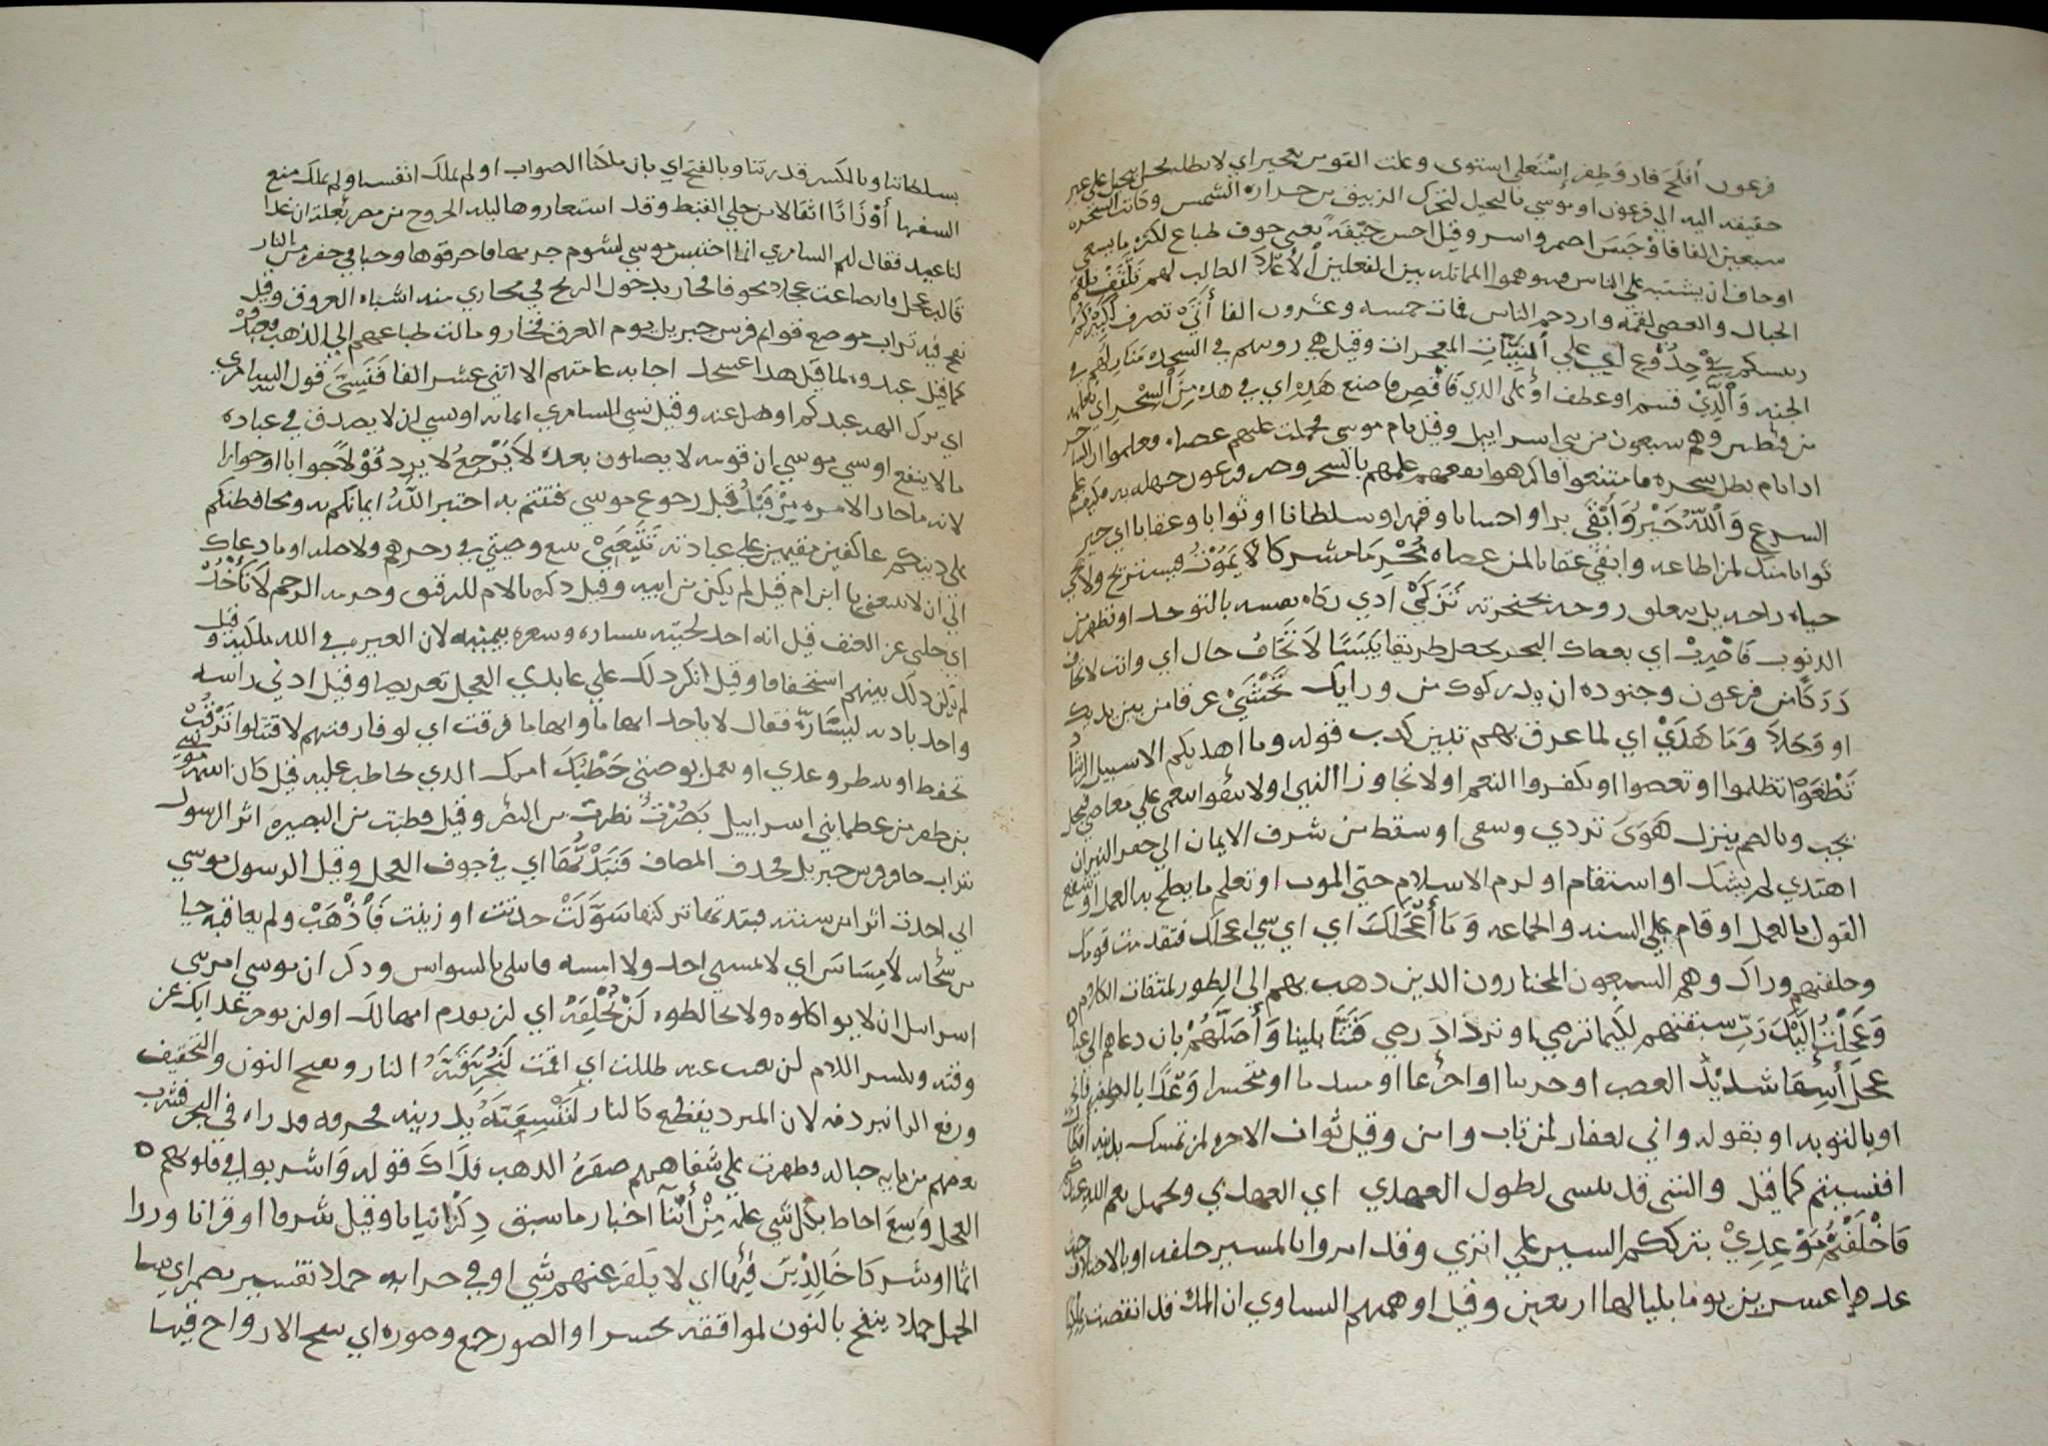 فرعون أفلح فاز وظفر إستعلى استوى وعلت القوس
حقيقه اليه الي فرعون او موسي بالتخيل لتحرك الزيبق من حراره الشمس وكانت السحره
سبعين الفا فأوجس اضمر واسر وقيل احس خيفة يعني خوف طباع لكثره ما يسعي
او خاف ان يشتبه على الناس فيتوهموا المماثله بين الفعلين الأعلى الغالب لهم تلقف تلقم
الحبال والعصى لقمه وازدحم الناس فمات خمسه وعشرون الفا أنى تصرف كبيركم
رييسكم في جذوع اي علي ألبينات المعجزات وقيل هي روييتهم في السجده منازلهم في
الجنه والذي قسم او عطف او على الذي فأقض فاصنع هذه اي في هذه من السحر اي تعلمه
من وهم سبعون من بني اسراييل وقيل نام موسى فحملت عليهم عصاه وعلموا ان الساحر
اذا نام بطل سحره فامتنعوا فاكرهوا بعضهم علمهم بالسحر وحض فرعون جهله به
السرع والله خير وأبقى برا واحسانا وقهرا وسلطانا او ثوابا وعقابا اي خير
ثوابا منك لمن اطاعه وابقي عقابا لمن عصاه مجرما مشركا لا يموت فيستريح ولا يحيى
حياه راحه بل يعلق روحه بحنجرته تزكى ادي زكاه نفسه بالتوحد او تطهر من
الذنوب فأضرب اي بعصاك البحر يحصل طريقا يبسا لا تخاف حال اي وانت لا تخاف
دركا من فرعون وجنوده ان يدركوك من ورايك تخشى غرقا من بين يديك
او وحلا وما هدي اي لما غرق بهم تبين كذب قوله وما اهديكم الا سبيل الرشاد
تطغوا تظلموا او تعصوا او تكفروا النعم او لا تجاوزا النهي او لا تتقوا بنعمي علي معاصي فيحل
يجب وبالضم ينزل هوى تردي وسعى او سقط من شرف الايمان الي قعر النيران
اهتدي لم يشك او استقام او لزم الاسلام حتى الموت او تعلم ما يصلح به العمل او شفع
القول بالعمل او قام على السنه والجماعه وما أعجلك اي اي سي اعجلك فتقدمت قومك
وخلفتهم وراك وهم السبعون المختارون الذين ذهب بهم الى الطور لميقات الكلام
وعجلت إليك رب سبقتهم لكيما ترضي او تزداد رضي فتنا بلينا وأضلهم بان دعاهم الى عباده
عجل أسفا شديد الغضب او حزينا او جزعا او متندما او متحسرا وعدا بالظفر
او بالتوبه او بقوله واني لغفار لمن تاب وامن وقيل ثواب الاخره لمن تمسك بدينه أفطال
افنسيتم كما قيل والشي قد ينسى لطول العهدي اي العهد بي وتحمل نعم الله عندكم
فأخلفتم موعدي بترككم السير علي اثري وقد امروا بالمسير خلفه او بالاختلاف حيث
عدها عشرين يوما بلياليها اربعين وقيل اوهمهم الساوي ان المده قد انقضت بملكنا
بسلطاننا وبالكسر قدرتنا وبالفتح اي بان ملكنا الصواب او لم نملك انفسنا ولم نملك منع
السفها أوزارا اثقالا من حلي القبط وقد استعاروها ليله الخروج من مصر بعله ان غدا
لنا عيد فقال لهم السامري انما احتبس موسي لشوم جرمها فاحرقوها وخبا في حفره من النار
قالب عجل فانصاعت عجلا مجوفا فخار بدخول الريح في مجاري منه اشباه العروق وقيل
نفخ فيه تراب موضع قوايم فرس جبريل يوم الغرق فخار ومالت طباعهم الي الذهب
كما قيل عبدوه لما قيل هذا عسجد اجابه عامتهم الا اثني عشر الفا فنسي قول السامري
اي ترك الهه عندكم او ضل عنه وقيل نسي السامري ايمانه او نسي ان لا يصدق في عباده
ما لا ينفع او نسي موسي ان قومه لا يضلون بعده لا يرجع لا يرد قولا جوابا او خوارا
لانه ما خار الا مره من قبل قبل رجوع موسي فتنتم به اختبر الله ايمانكم به ومحافظتكم
على دينكم عاكفين مقيمين على عبادته تتبعني تتبع وصيتي في زجرهم ولا صله او ما دعاك
الي ان لا تتبعني يا ابن ام قيل لم يكن من ابيه وقيل ذكره بالام للترقيق وحرمه الرحم لا تأخذ
اي خلي عن العنف قيل انه اخذ لحيته بيساره وشعره بيمينه لان الغيره في الله ملكته وقيل
لم يكن ذلك بينهم استخفافا وقيل انكر ذلك علي عابدي العجل تعريضا وقيل ادني راسه
واخذ باذنه ليشاره فقال لا ياخذ ايهاما وايهاما فرقت اي لو فارقتهم لاقتتلوا ترقب
تحفظ او تنظر وعدي او تعمل بوصيتي خطبك امرك الذي تخاطب عليه قيل كان اسمه موسي
بن ظفر من عظما بني اسراييل بصرت نظرت من النظر وقيل فطنت من البصيره اثر الرسول
تراب حافر فرس جبريل فحذف المضاف فنبذتها اي في جوف العجل وقيل الرسول موسي
اي اخذت اثرا من سنته فنبذتها تركتها سولت حدثت او زينت فأذهب ولم يعاقبه حيا
من سخايه لامساس اي لا يمسني احد ولا امسه فابتلى بالوسواس وذكر ان موسي امر بني
اسراييل ان لا يواكلوه ولا يخالطوه لن تخلفه اي لن يعدم امهالك او لن يوخر عذابك عن
وقته وبكسر اللام لن تغيب عنه ظللت اي اقمت لنحرقنه النار وبفتح النون والتخفيف
ورفع الرا نبردنه لان المبرد يقطع كالنار لننسفنه يذرينه محروقه فذراه في البحر فشرب
بعضهم من مايه حباله فظهرت على شفاههم صفره الذهب فذاك قوله وأشربوا في قلوبهم
العجل وسع احاط بكل شي علمه من أنبآ اخبار ما سبق ذكرا بيانا وقيل شرفا او قرانا وزرا
اثما او شركا خالدين فيها اي لا يكفر عنهم شي او في جزايه حملا تفسير بصمر اي بيسما
الحمل حملا ينفخ بالنون لموافقه نحشر او الصور جمع وصوره اي ينفخ الارواح فيها